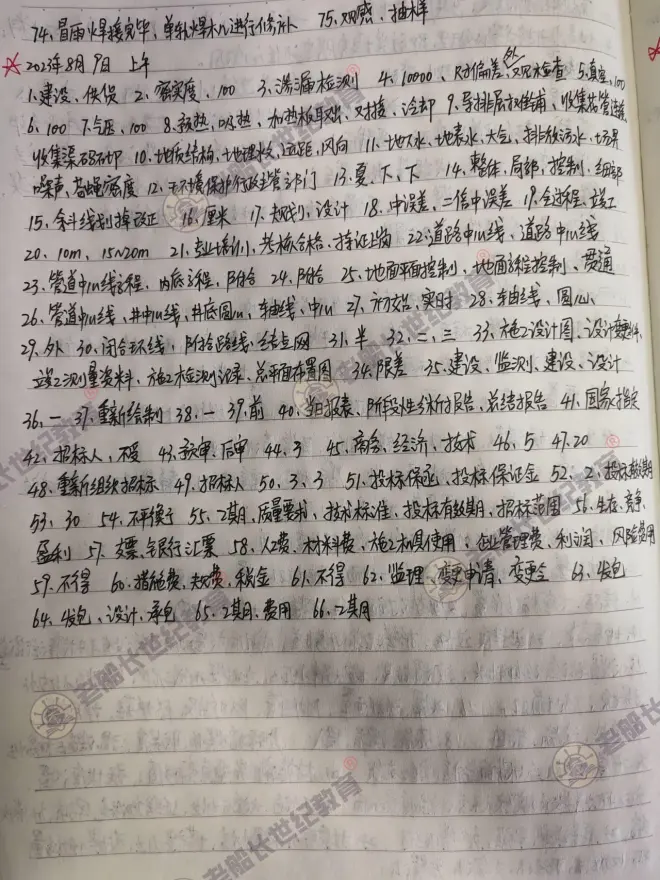 74、冒雨焊接完毕,单轨焊机进行修补 75、观感、抽样
☆ 2023年8月9日 上午
1.建设、供货 2、密实度、100 3、渗漏检测 4、10000、对偏差、外观检查 5、真空、100
6、100 7、气压、100 8、预热、吸热、加热板取出、对接、冷却 9、导排层摊铺、收集花管连接、
收集渠码砌 10、地质结构、地理水文、运距、风向 11、地下水、地表水、大气、排放污水、场界
噪声、苍蝇密度 12、环境保护行政主管部门 13、夏、下、下 14、整体、局部、控制、细部
15、斜线划掉改正 16、厘米 17、规划、设计 18、中误差、二倍中误差 19、全过程、竣工
20、10m、15~20m 21、专业培训、考核合格、持证上岗 22、道路中心线、道路中心线
23、管道中心线高程、内底高程、附合 24、附合 25、地面平面控制、地面高程控制、贯通
26、管道中心线、井中心线、井底圆心、轴线、中心 27、初始、实时 28、轴线、圆心、
29、外 30、闭合环线、附合路线、结点网 31、半 32、二、三 33、施工设计图、设计变更文件、
竣工测量资料、施工检测记录、总平面布置图 34、限差 35、建设、监测、建设、设计
36、一 37、重新绘制 38、一 39、前 40、当日报表、阶段性分析报告、总结报告 41、国家指定
42、招标人、不受 43、预审、后审 44、3 45、商务、经济、技术 46、5 47、20
48、重新组织招标 49、招标人 50、3、3 51、投标保函、投标保证金 52、2、投标有效期
53、30 54、不平衡 55、工期、质量要求、技术标准、投标有效期、招标范围 56、生存、竞争、
盈利 57、支票、银行汇票 58、人工费、材料费、施工机具使用、企业管理费、利润、风险费用
59、不得 60、措施费、规费、税金 61、不得 62、监理、变更申请、变更令 63、发包
64、发包、设计、承包 65、工期、费用 66、工期
老船长世纪教育